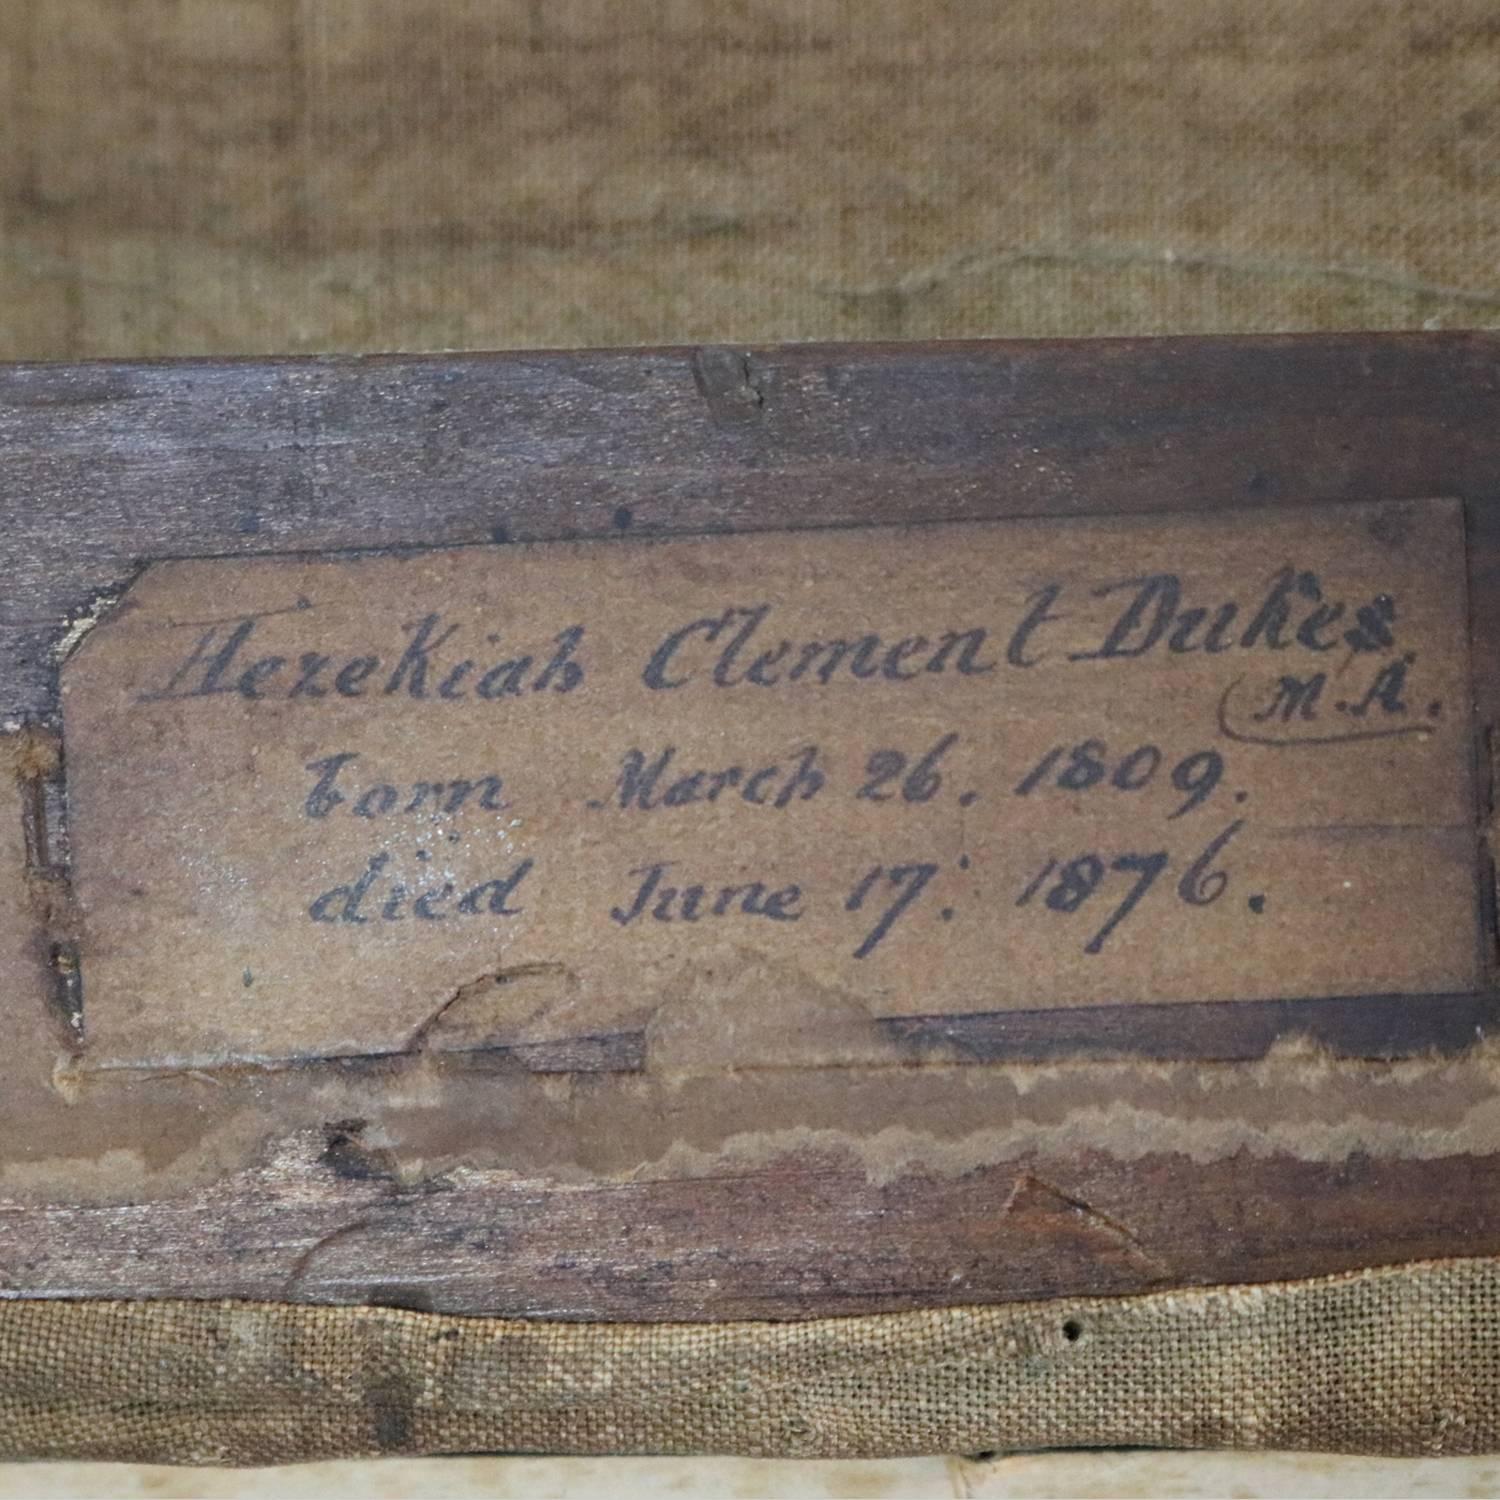 Hezekiah Clement Dukes
M.A.
born March 26. 1809.
died June 17. 1876.